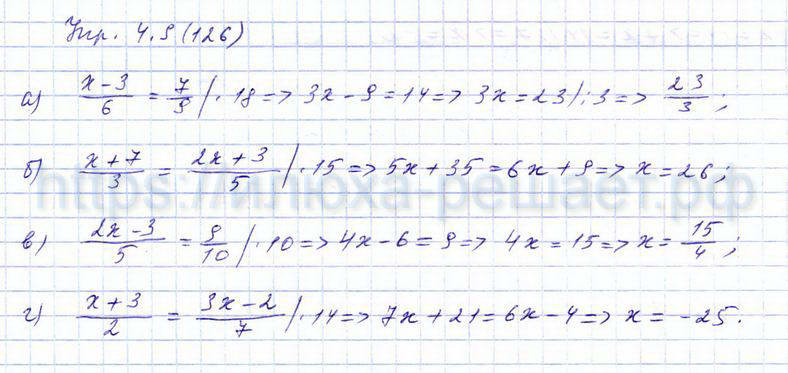 Упр. 4.9 (126)
а) (x-3)/6 = 7/9 /·18 => 3x-9=14 => 3x=23 /:3 => 23/3;
б) (x+7)/3 = (2x+3)/5 /·15 => 5x+35=6x+9 => x=26;
https://илюха-решает.рф
в) (2x-3)/5 = 9/10 /·10 => 4x-6=9 => 4x=15 => x=15/4;
г) (x+3)/2 = (3x-2)/7 /·14 => 7x+21=6x-4 => x=-25.